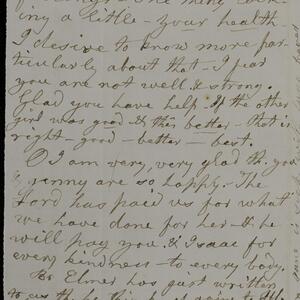 ing a little - your health
I desire to know more par-
ticularly about that - I fear
you are not well & strong.
Glad you have help - If the other
girl was good & this better - that is
right - good - better - best.
I am very, very glad that you
& Jenny are so happy. The
Lord has paid us for what
we have done for her - & he
will pay you & Isaac for
every kindness to every body.
Br Elmer has just written
to us that he thinks of going to